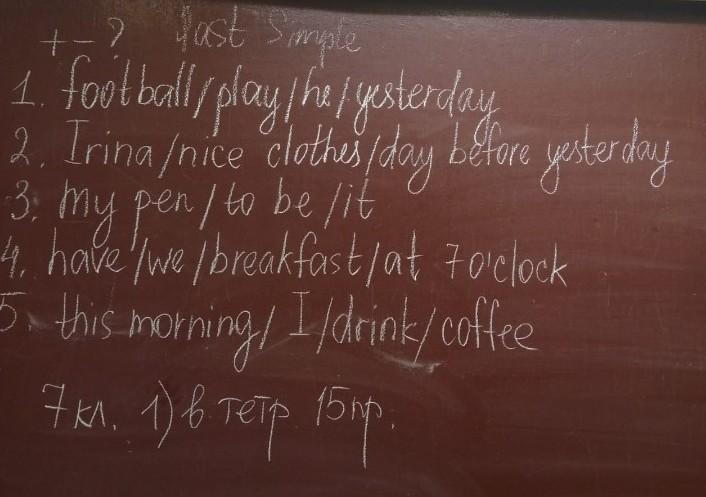 + – ? Past Simple
1. football/play/he/yesterday
2. Irina/nice clothes/day before yesterday
3. my pen/to be/it
4. have/we/breakfast/at 7 o'clock
5. this morning/I/drink/coffee
7 кл. 1) в тетр 15 пр.